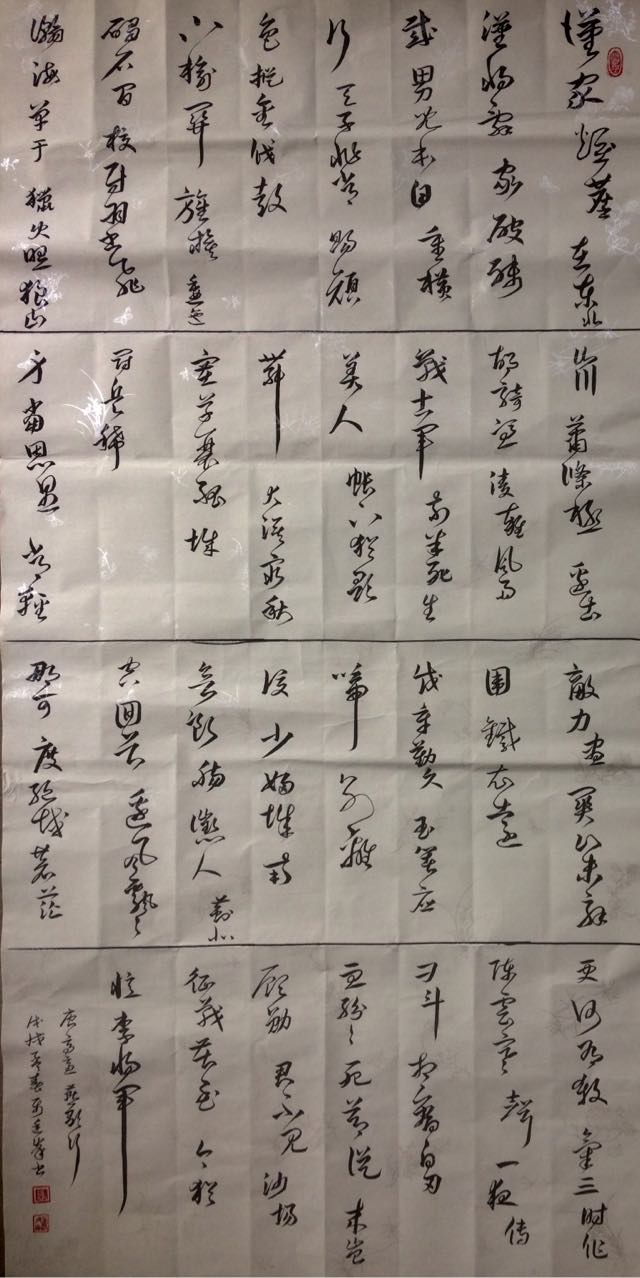 漢家煙塵在東北
漢將辭家破殘
賊男兒本自重橫
行天子非常賜顏
色摐金伐鼓
下榆關旌旆逶迤
碣石間校尉羽書飛
瀚海單于獵火照狼山
山川蕭條極邊土
胡騎憑陵雜風雨
戰士軍前半死生
美人帳下猶歌
舞大漠窮秋
塞草衰孤城
鬥兵稀
身當恩遇常輕
敵力盡關山未解
圍鐵衣遠
戍辛勤久玉箸應
啼別離
後少婦城南
欲斷腸征人薊北
空回首邊風飄飄
那可度絕域蒼茫
更何有殺氣三時作
陣雲寒聲一夜傳
刁斗相看白刃
血紛紛死節從來豈
顧勳君不見沙場
征戰苦至今猶
憶李將軍
唐高適燕歌行
戊戌孟春書